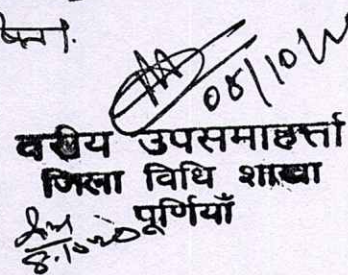 08/10/
वरीय उपसमाहर्त्ता
जिला विधि शाखा
पूर्णियाँ
8.10.20